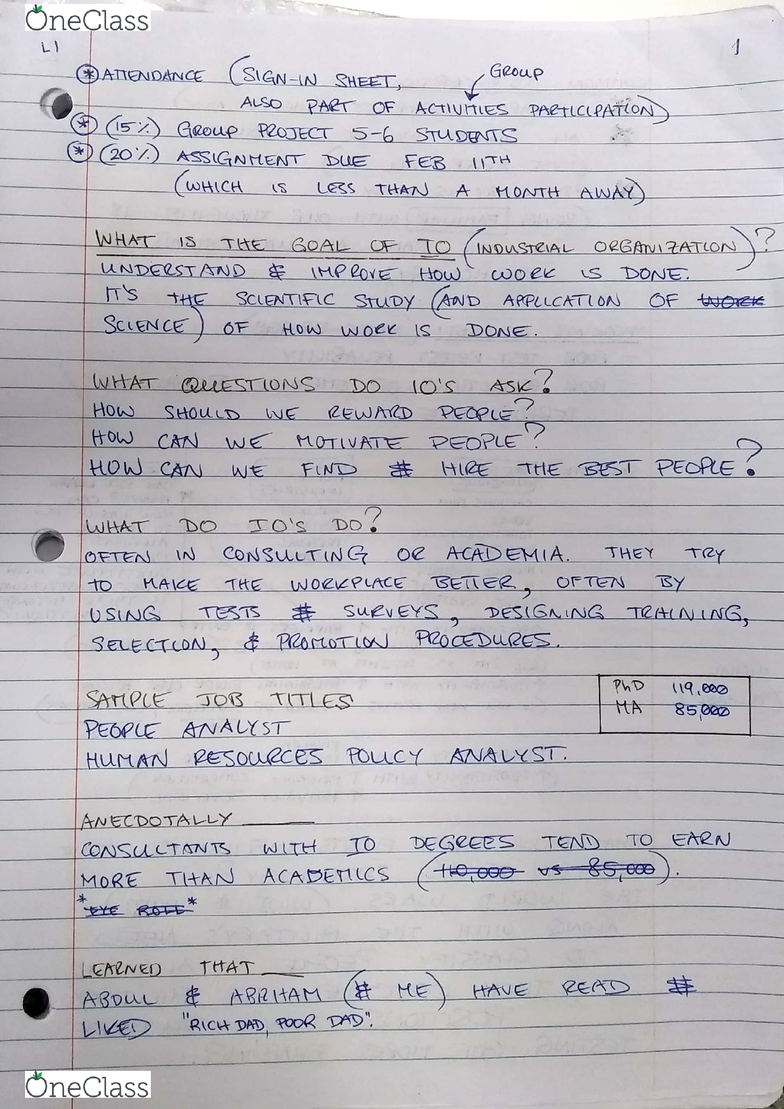 OneClass
L1
1
* ATTENDANCE (SIGN-IN SHEET,
GROUP
ALSO PART OF ACTIVITIES PARTICIPATION)
* (15%) GROUP PROJECT 5-6 STUDENTS
* (20%) ASSIGNMENT DUE FEB 11TH
(WHICH IS LESS THAN A MONTH AWAY)
WHAT IS THE GOAL OF IO (INDUSTRIAL ORGANIZATION)?
UNDERSTAND & IMPROVE HOW WORK IS DONE.
IT'S THE SCIENTIFIC STUDY (AND APPLICATION OF WORK
SCIENCE) OF HOW WORK IS DONE.
WHAT QUESTIONS DO IO'S ASK?
HOW SHOULD WE REWARD PEOPLE?
HOW CAN WE MOTIVATE PEOPLE?
HOW CAN WE FIND & HIRE THE BEST PEOPLE?
WHAT DO IO'S DO?
OFTEN IN CONSULTING OR ACADEMIA. THEY TRY
TO MAKE THE WORKPLACE BETTER, OFTEN BY
USING TESTS & SURVEYS, DESIGNING TRAINING,
SELECTION, & PROMOTION PROCEDURES.
SAMPLE JOB TITLES
PhD 119,000
MA 85,000
PEOPLE ANALYST
HUMAN RESOURCES POLICY ANALYST.
ANECDOTALLY
CONSULTANTS WITH IO DEGREES TEND TO EARN
MORE THAN ACADEMICS (110,000 vs 85,000).
*EYE ROLL*
LEARNED THAT
ABDUL & ABRHAM (& ME) HAVE READ &
LIKED "RICH DAD, POOR DAD".
OneClass